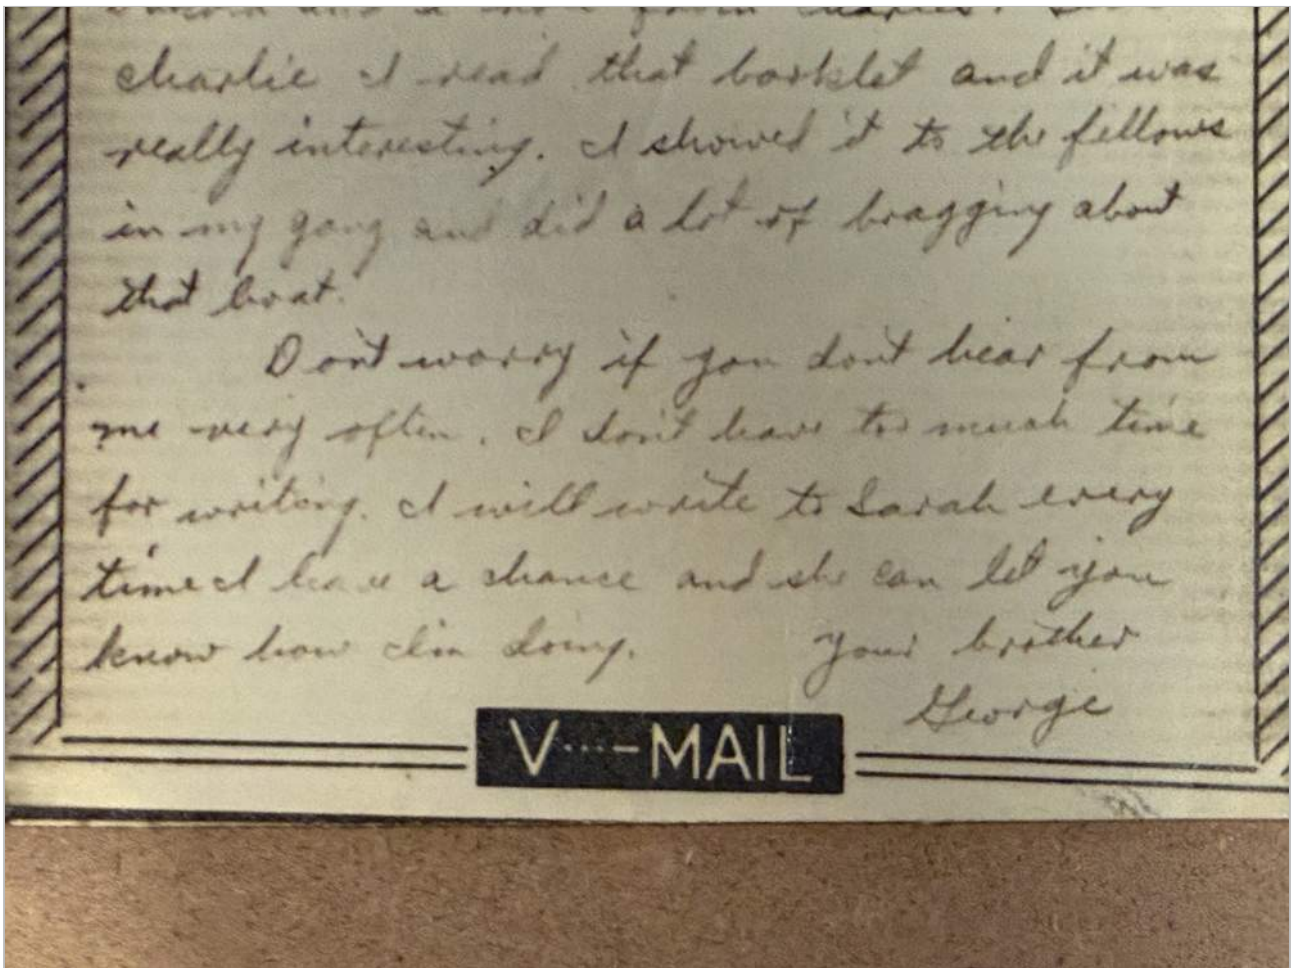 charlie I read that booklet and it was
really interesting. I showed it to the fellows
in my gang and did a lot of bragging about
that boat.
Dont worry if you dont hear from
me very often. I don't have too much time
for writing. I will write to Sarah every
time I have a chance and she can let you
know how I'm doing. Your brother
George
V···—MAIL